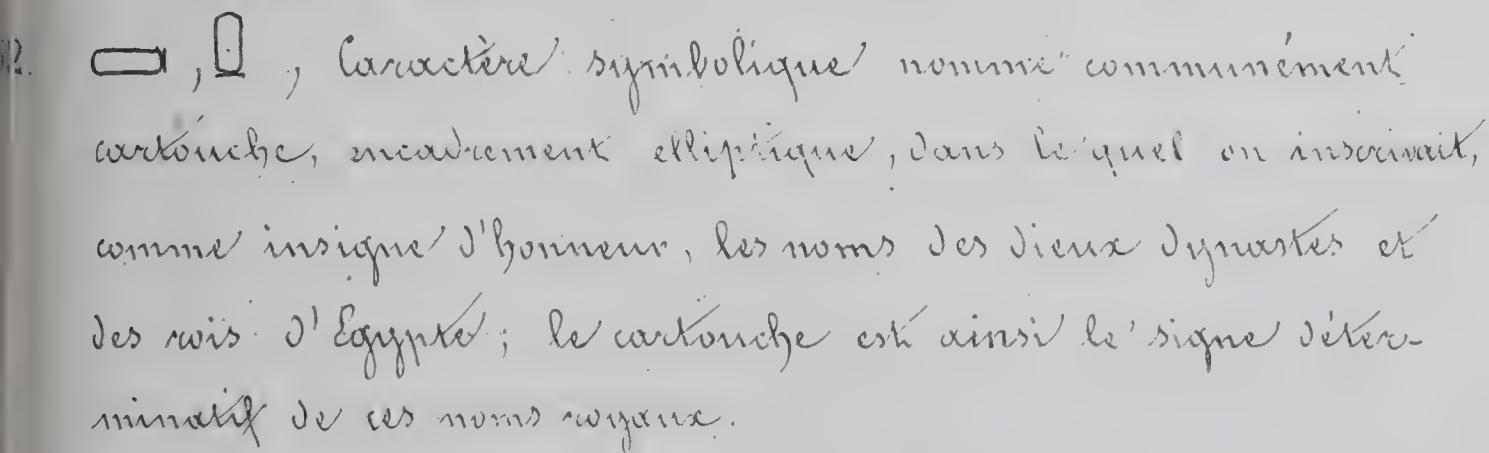 𓍷, 𓍷, Caractère symbolique nommé communément
cartouche, encadrement elliptique, dans le quel on inscrivait,
comme insigne d'honneur, les noms des dieux dynastes et
des rois d'Egypte; le cartouche est ainsi le signe déter-
minatif de ces noms royaux.